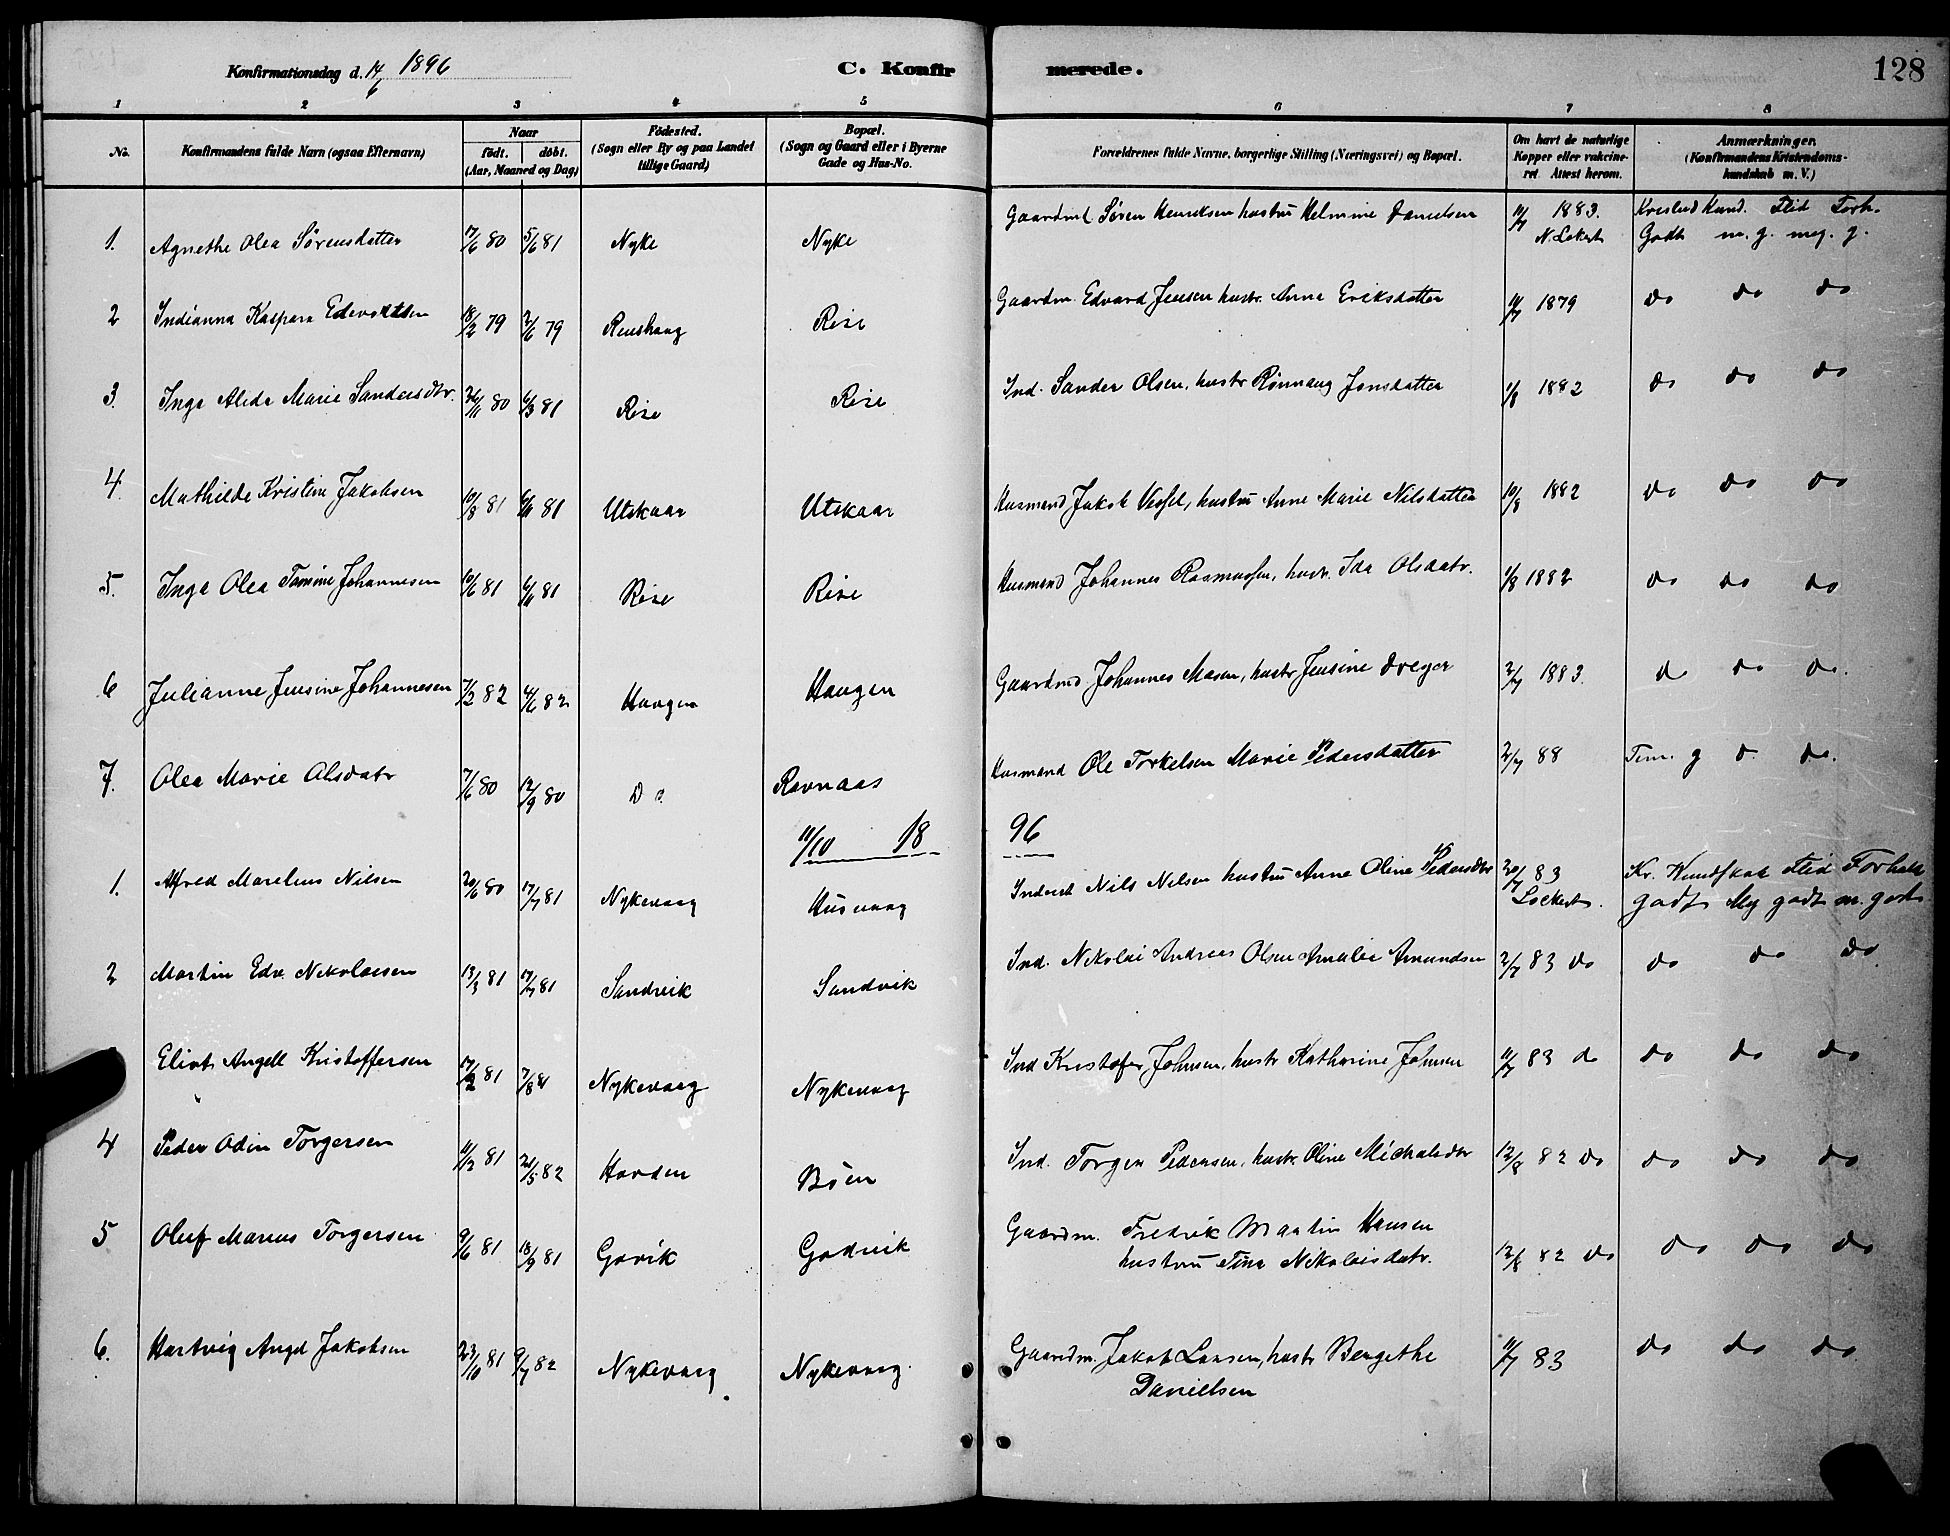 Konfirmationsdag d. 14/6 1896 C. Konfirmerede. 128
1 2 3 4 5 6 7 8
No. Konfirmandens fulde Navn (ogsaa Efternavn) Naar født. døbt. (Aar, Maaned og Dag) Fødested. (Sogn eller By og paa Landet tillige Gaard) Bopæl. (Sogn og Gaard eller i Byerne Gade og Hus-No. Forældrenes fulde Navne, borgerlige Stilling (Næringsvei) og Bopæl. Om havt de naturlige Kopper eller vakcineret. Attest herom. Anmærkninger. (Konfirmandens Kristendomskundskab m. V.)
1. Agnethe Olea Sørensdatter 17/6 80 5/6 81 Nyke Nyke Gaardmd Søren Henriksen hustru Helmine Danielsen 11/7 1883. N. Lokert Kristnd Kund. Flid Forh. Godt m. g. meg. g.
2 Indianna Kaspara Edvartsen 18/2 79 2/6 79 Renshaug Risе Gaardm. Edvard Jensen hustr. Anne Eriksdatter 11/7 1879 do do do
3. Inga Alida Marie Sandersdtr. 26/11 80 6/3 81 Rise Rise Ind. Sander Olsen, hustr Rønnaug Jonsdatter 1/8 1882 do do do
4. Mathilde Kristine Jakobsen 10/8 81 6/11 81 Utskaar Utskaar Husmand Jakob Wessel, hustru Anne Marie Nilsdatter 10/8 1882 do do do
5. Inga Olea Tomine Johannesen 10/6 81 6/11 81 Rise Rise Husmand Johannes Rasmussen, hustr. Ida Olsdatr. 1/8 1882 do do do
6 Julianne Jensine Johannesen 7/2 82 4/6 82 Haugen Haugen Gaardmd Johannes Masen, hustr Jensine Dreyer 2/7 1883. d do do.
7. Olea Marie Olsdatr 7/6 80 12/9 80 Do. Ravnaas Husmand Ole Torkelsen Marie Pedersdatter 2/7 88 Tem. g do do.
11/10 1896
1. Alfred Marelius Nilsen 20/6 80 17/7 81 Nykevaag Husvaag Inderst Nils Nilsen hustru Anne Oline Pedersdtr 20/7 83 Lockert. Kr. Kundskab Flid Forhold godt Meg godt m. godt
2 Martin Edv. Nikolaisen 13/3 81 17/7 81 Sandvik Sandvik Ind. Nikolai Andreas Olsen Amalie Amundsen 2/7 83 do do do do
Eliot Angell Kristoffersen 17/2 81 7/8 81 Nykevaag Nykevaag Ind Kristofer Johnsen, hustr Katharine Johnsen 11/7 83 do do do do
4 Peder Odin Torgersen 11/2 81 21/5 82 Hovden Bøen Ind. Torger Pedersen, hustr. Oline Michalsdtr 12/8 82 do do do do
5 Oluf Marius Torgersen 9/6 81 18/9 81 Gavik Gadvik Gaardm. Fredrik Martin Hansen hustru Tina Nikolaisdatr. 12/8 82 do do do do
6. Hartvig Angel Jakobsen 23/10 81 9/7 82 Nykevaag Nykevaag. Gaardm. Jakob Larsen, hustr Bergethe Danielsen 11/7 83 do do do